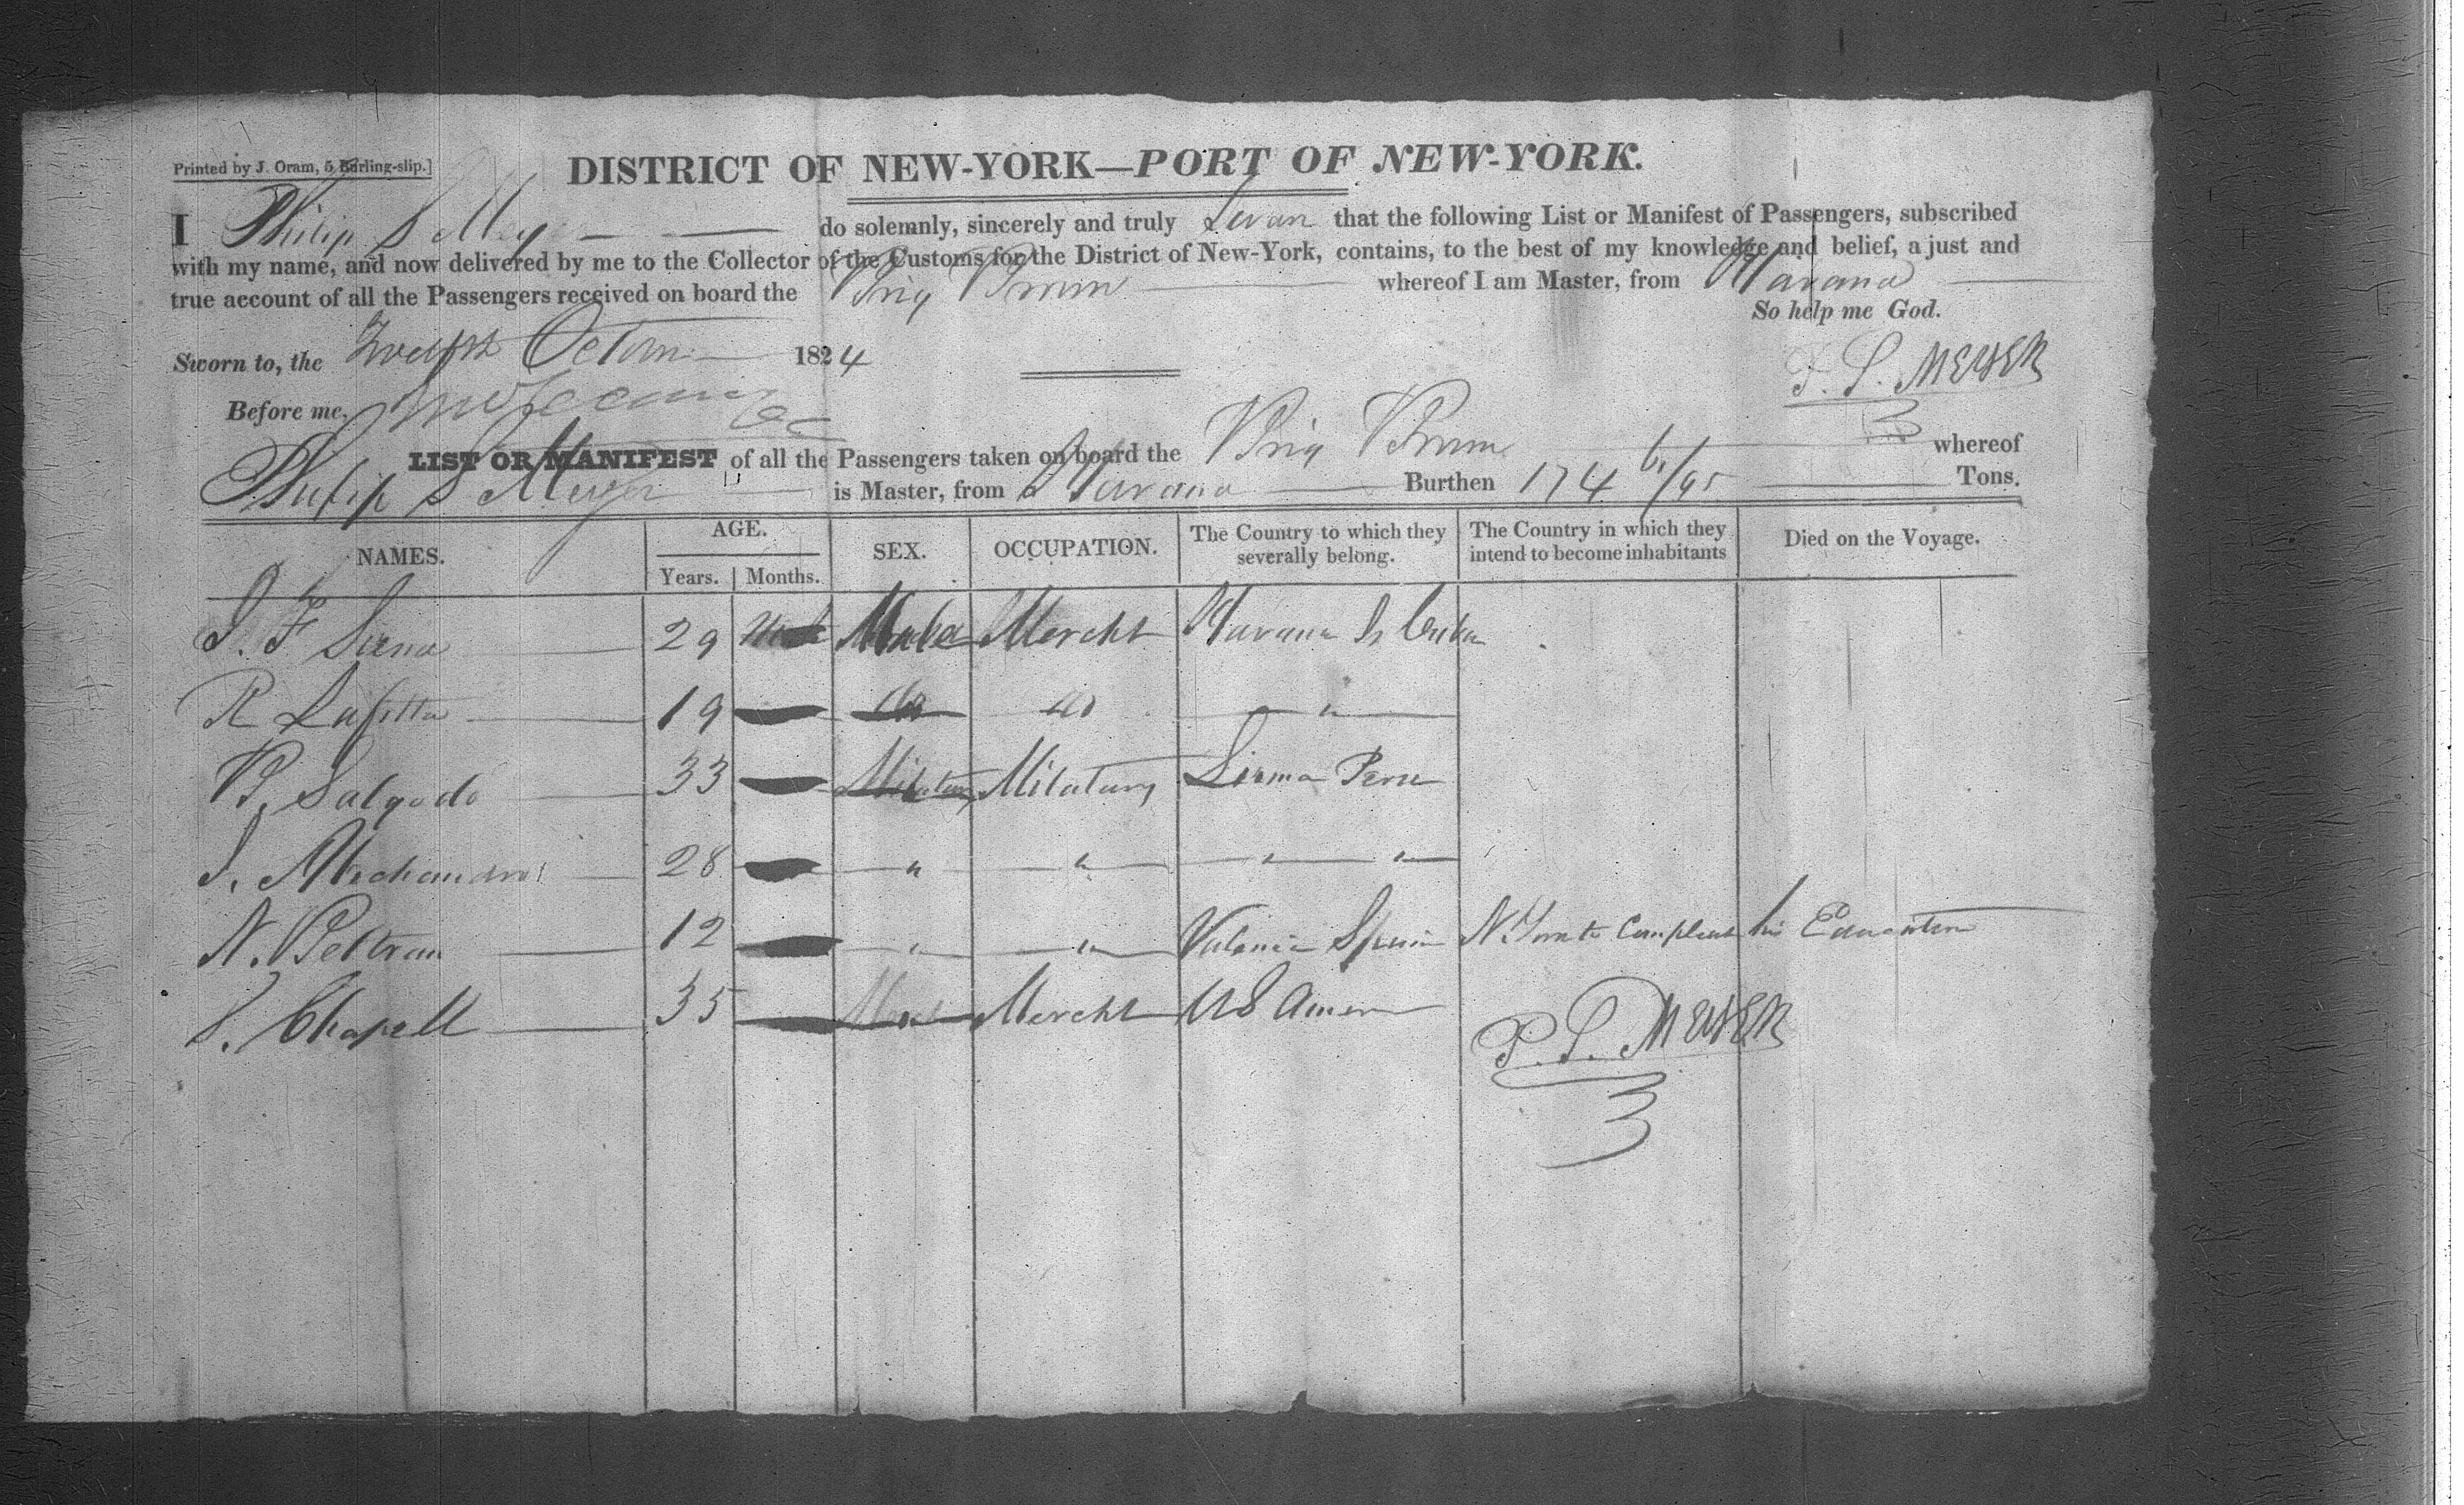 Printed by J. Oram, 5 Burling-slip.]
DISTRICT OF NEW-YORK—PORT OF NEW-YORK.
I Philip S Meyer do solemnly, sincerely and truly Swear that the following List or Manifest of Passengers, subscribed
with my name, and now delivered by me to the Collector of the Customs for the District of New-York, contains, to the best of my knowledge and belief, a just and
true account of all the Passengers received on board the Brig whereof I am Master, from Havana
So help me God.
Sworn to, the Twelfth 1824
P. S. MEYER
Before me,
LIST OR MANIFEST of all the Passengers taken on board the Brig whereof
Philip S Meyer is Master, from Havana Burthen 174 /95 Tons.
NAMES. AGE. Years. Months. SEX. OCCUPATION. The Country to which they severally belong. The Country in which they intend to become inhabitants Died on the Voyage.
J. F 29 Male Mercht Havana Is Cuba
R Lafitta 19 do do "
B. Salgado 33 Militany Militany Lima Peru
J. 28 " " " "
N. Beltran 12 " " Valencia Spain N. York to Compleat his Education
S. Chapell 35 Mercht U S Amer
P. S. MEYER